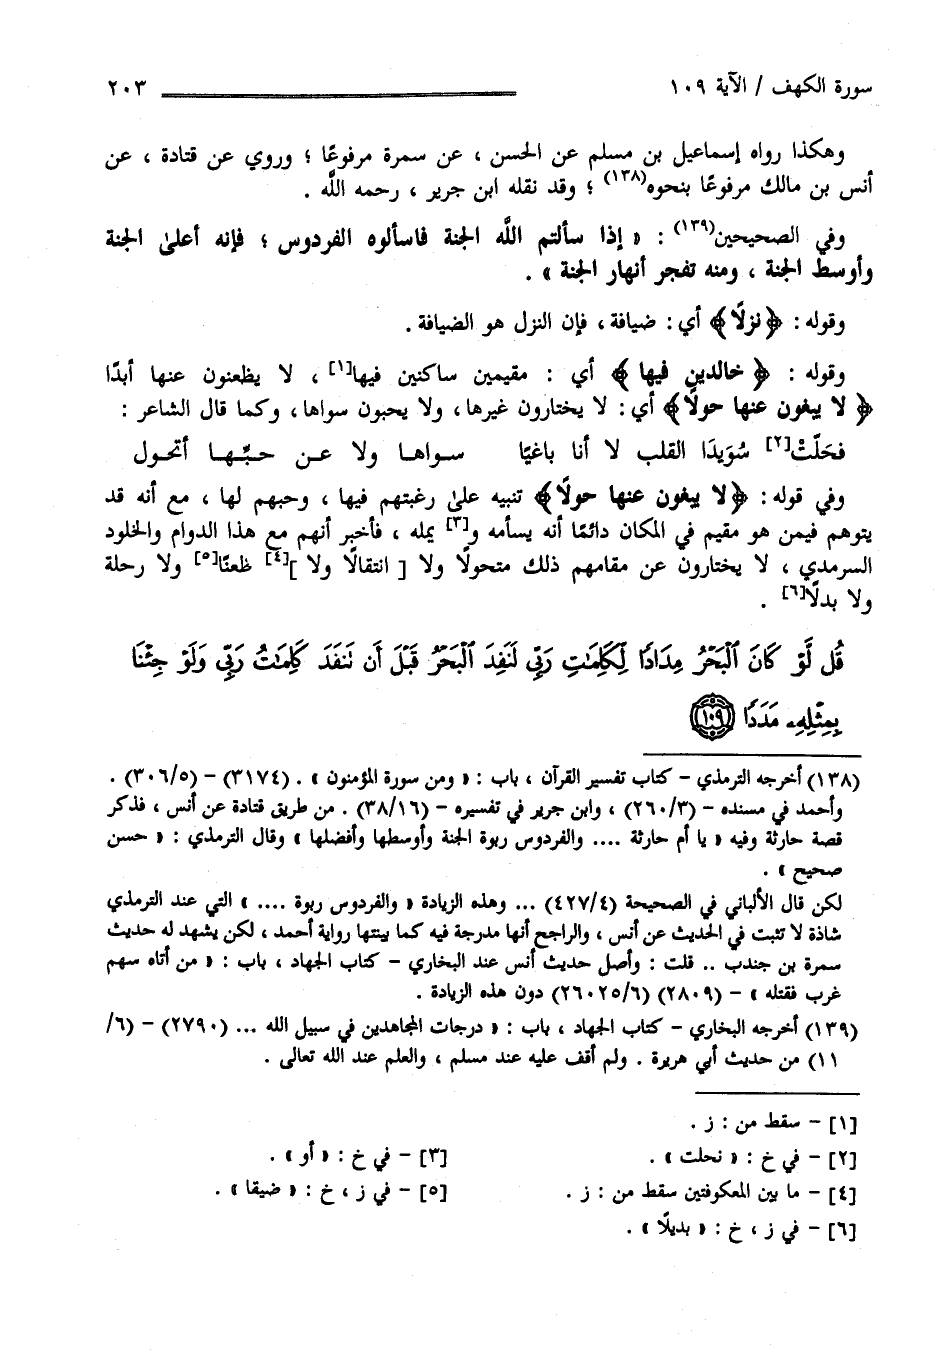 سورة الكهف / الآية ١٠٩ ٢٠٣
وهكذا رواه إسماعيل بن مسلم عن الحسن ، عن سمرة مرفوعًا ؛ وروي عن قتادة ، عن
أنس بن مالك مرفوعًا بنحوه(١٣٨) ؛ وقد نقله ابن جرير ، رحمه اللَّه .
وفي الصحيحين(١٣٩) : « إذا سألتم اللَّه الجنة فاسألوه الفردوس ؛ فإنه أعلى الجنة
وأوسط الجنة ، ومنه تفجر أنهار الجنة » .
وقوله : ﴿ نزلًا ﴾ أي : ضيافة ، فإن النزل هو الضيافة .
وقوله : ﴿ خالدين فيها ﴾ أي : مقيمين ساكنين فيها[١] ، لا يظعنون عنها أبدًا
﴿ لا يبغون عنها حولًا ﴾ أي : لا يختارون غيرها ، ولا يحبون سواها ، وكما قال الشاعر :
فحَلَّتْ[٢] سُوَيدَا القلب لا أنا باغيًا سواها ولا عن حبّها أتحول
وفي قوله : ﴿ لا يبغون عنها حولًا ﴾ تنبيه على رغبتهم فيها ، وحبهم لها ، مع أنه قد
يتوهم فيمن هو مقيم في المكان دائمًا أنه يسأمه و[٣] يمله ، فأخبر أنهم مع هذا الدوام والخلود
السرمدي ، لا يختارون عن مقامهم ذلك متحولًا ولا [ انتقالًا ولا ][٤] ظعنًا[٥] ولا رحلة
ولا بدلًا[٦] .
قُل لَّوْ كَانَ ٱلْبَحْرُ مِدَادًا لِّكَلِمَٰتِ رَبِّى لَنَفِدَ ٱلْبَحْرُ قَبْلَ أَن تَنفَدَ كَلِمَٰتُ رَبِّى وَلَوْ جِئْنَا
بِمِثْلِهِۦ مَدَدًا ﴿١٠٩﴾
(١٣٨) أخرجه الترمذي - كتاب تفسير القرآن ، باب : « ومن سورة المؤمنون » . (٣١٧٤) - (٣٠٦/٥) .
وأحمد في مسنده - (٢٦٠/٣) ، وابن جرير في تفسيره - (٣٨/١٦) . من طريق قتادة عن أنس ، فذكر
قصة حارثة وفيه « يا أم حارثة .... والفردوس ربوة الجنة وأوسطها وأفضلها » وقال الترمذي : « حسن
صحيح » .
لكن قال الألباني في الصحيحة (٤٢٧/٤) ... وهذه الزيادة « والفردوس ربوة .... » التي عند الترمذي
شاذة لا تثبت في الحديث عن أنس ، والراجح أنها مدرجة فيه كما بينتها رواية أحمد ، لكن يشهد له حديث
سمرة بن جندب .. قلت : وأصل حديث أنس عند البخاري - كتاب الجهاد ، باب : « من أتاه سهم
غرب فقتله » - (٢٨٠٩) (٢٦٠٢٥/٦) دون هذه الزيادة .
(١٣٩) أخرجه البخاري - كتاب الجهاد ، باب : « درجات المجاهدين في سبيل الله ... (٢٧٩٠) - (٦/
١١) من حديث أبي هريرة . ولم أقف عليه عند مسلم ، والعلم عند الله تعالى .
[١] - سقط من : ز .
[٢] - في خ : « نحلت » . [٣] - في خ : « أو » .
[٤] - ما بين المعكوفتين سقط من : ز . [٥] - في ز ، خ : « ضيقا » .
[٦] - في ز ، خ : « بديلًا » .